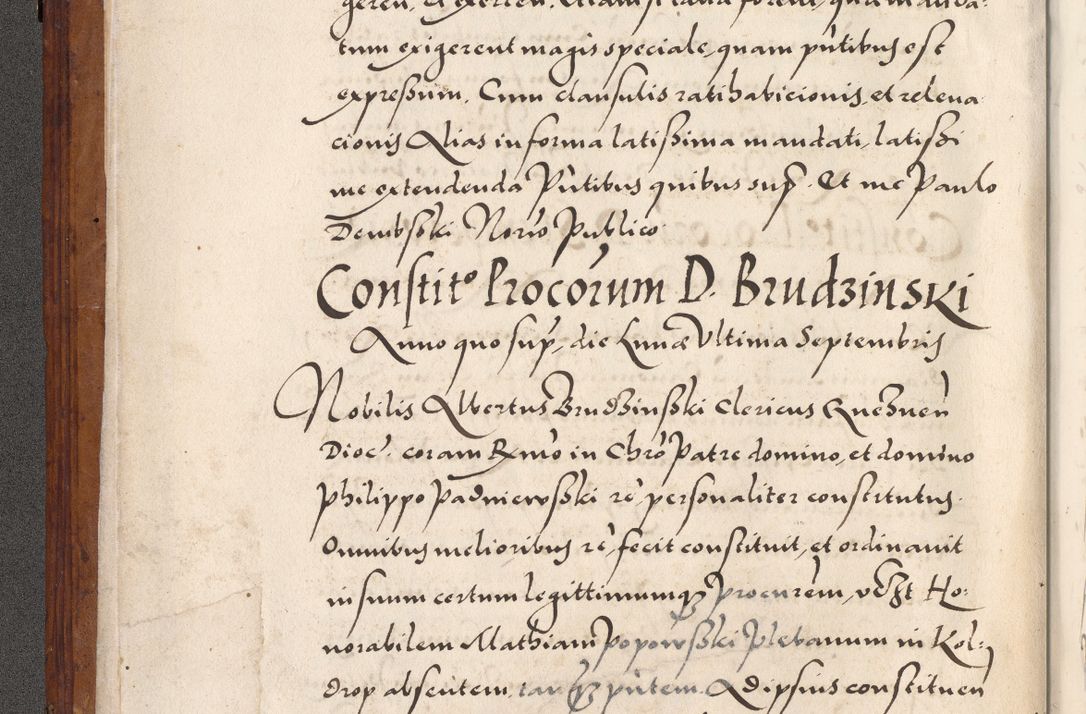 geren, et exercen. Etiam si talia forent, quæ manda:
tum exigerent magis speciale, quam pñtibus est
expressum. Cum clausulis ratihabicionis, et releua
cionis Alias in forma latissima mandati, latissi
me extendenda Pñtibus quibus sup̃. Et me Paulo
Dembski Nor̃io Publico
Constito Procorum D. Brudzinski
Anno quo sup̃, die Lunæ Vltima Septembris
Nobilis Albertus Brudzinski Clericus Gneznen̄
Dioc̃. coram Rm̃o in Chr̃o Patre domino, et domino
Philippo Padniewski rc̃ personaliter constitutus.
Omnibus melioribus rc̃, fecit constituit, et ordinauit
in suum certum legittimumqꝫ procurem, vꝫt Ho:
norabilem Mathiam Popowski Plebanum in Kol:
drop absentem, tanqꝫ pñtem. Ad ipsius constituen̄